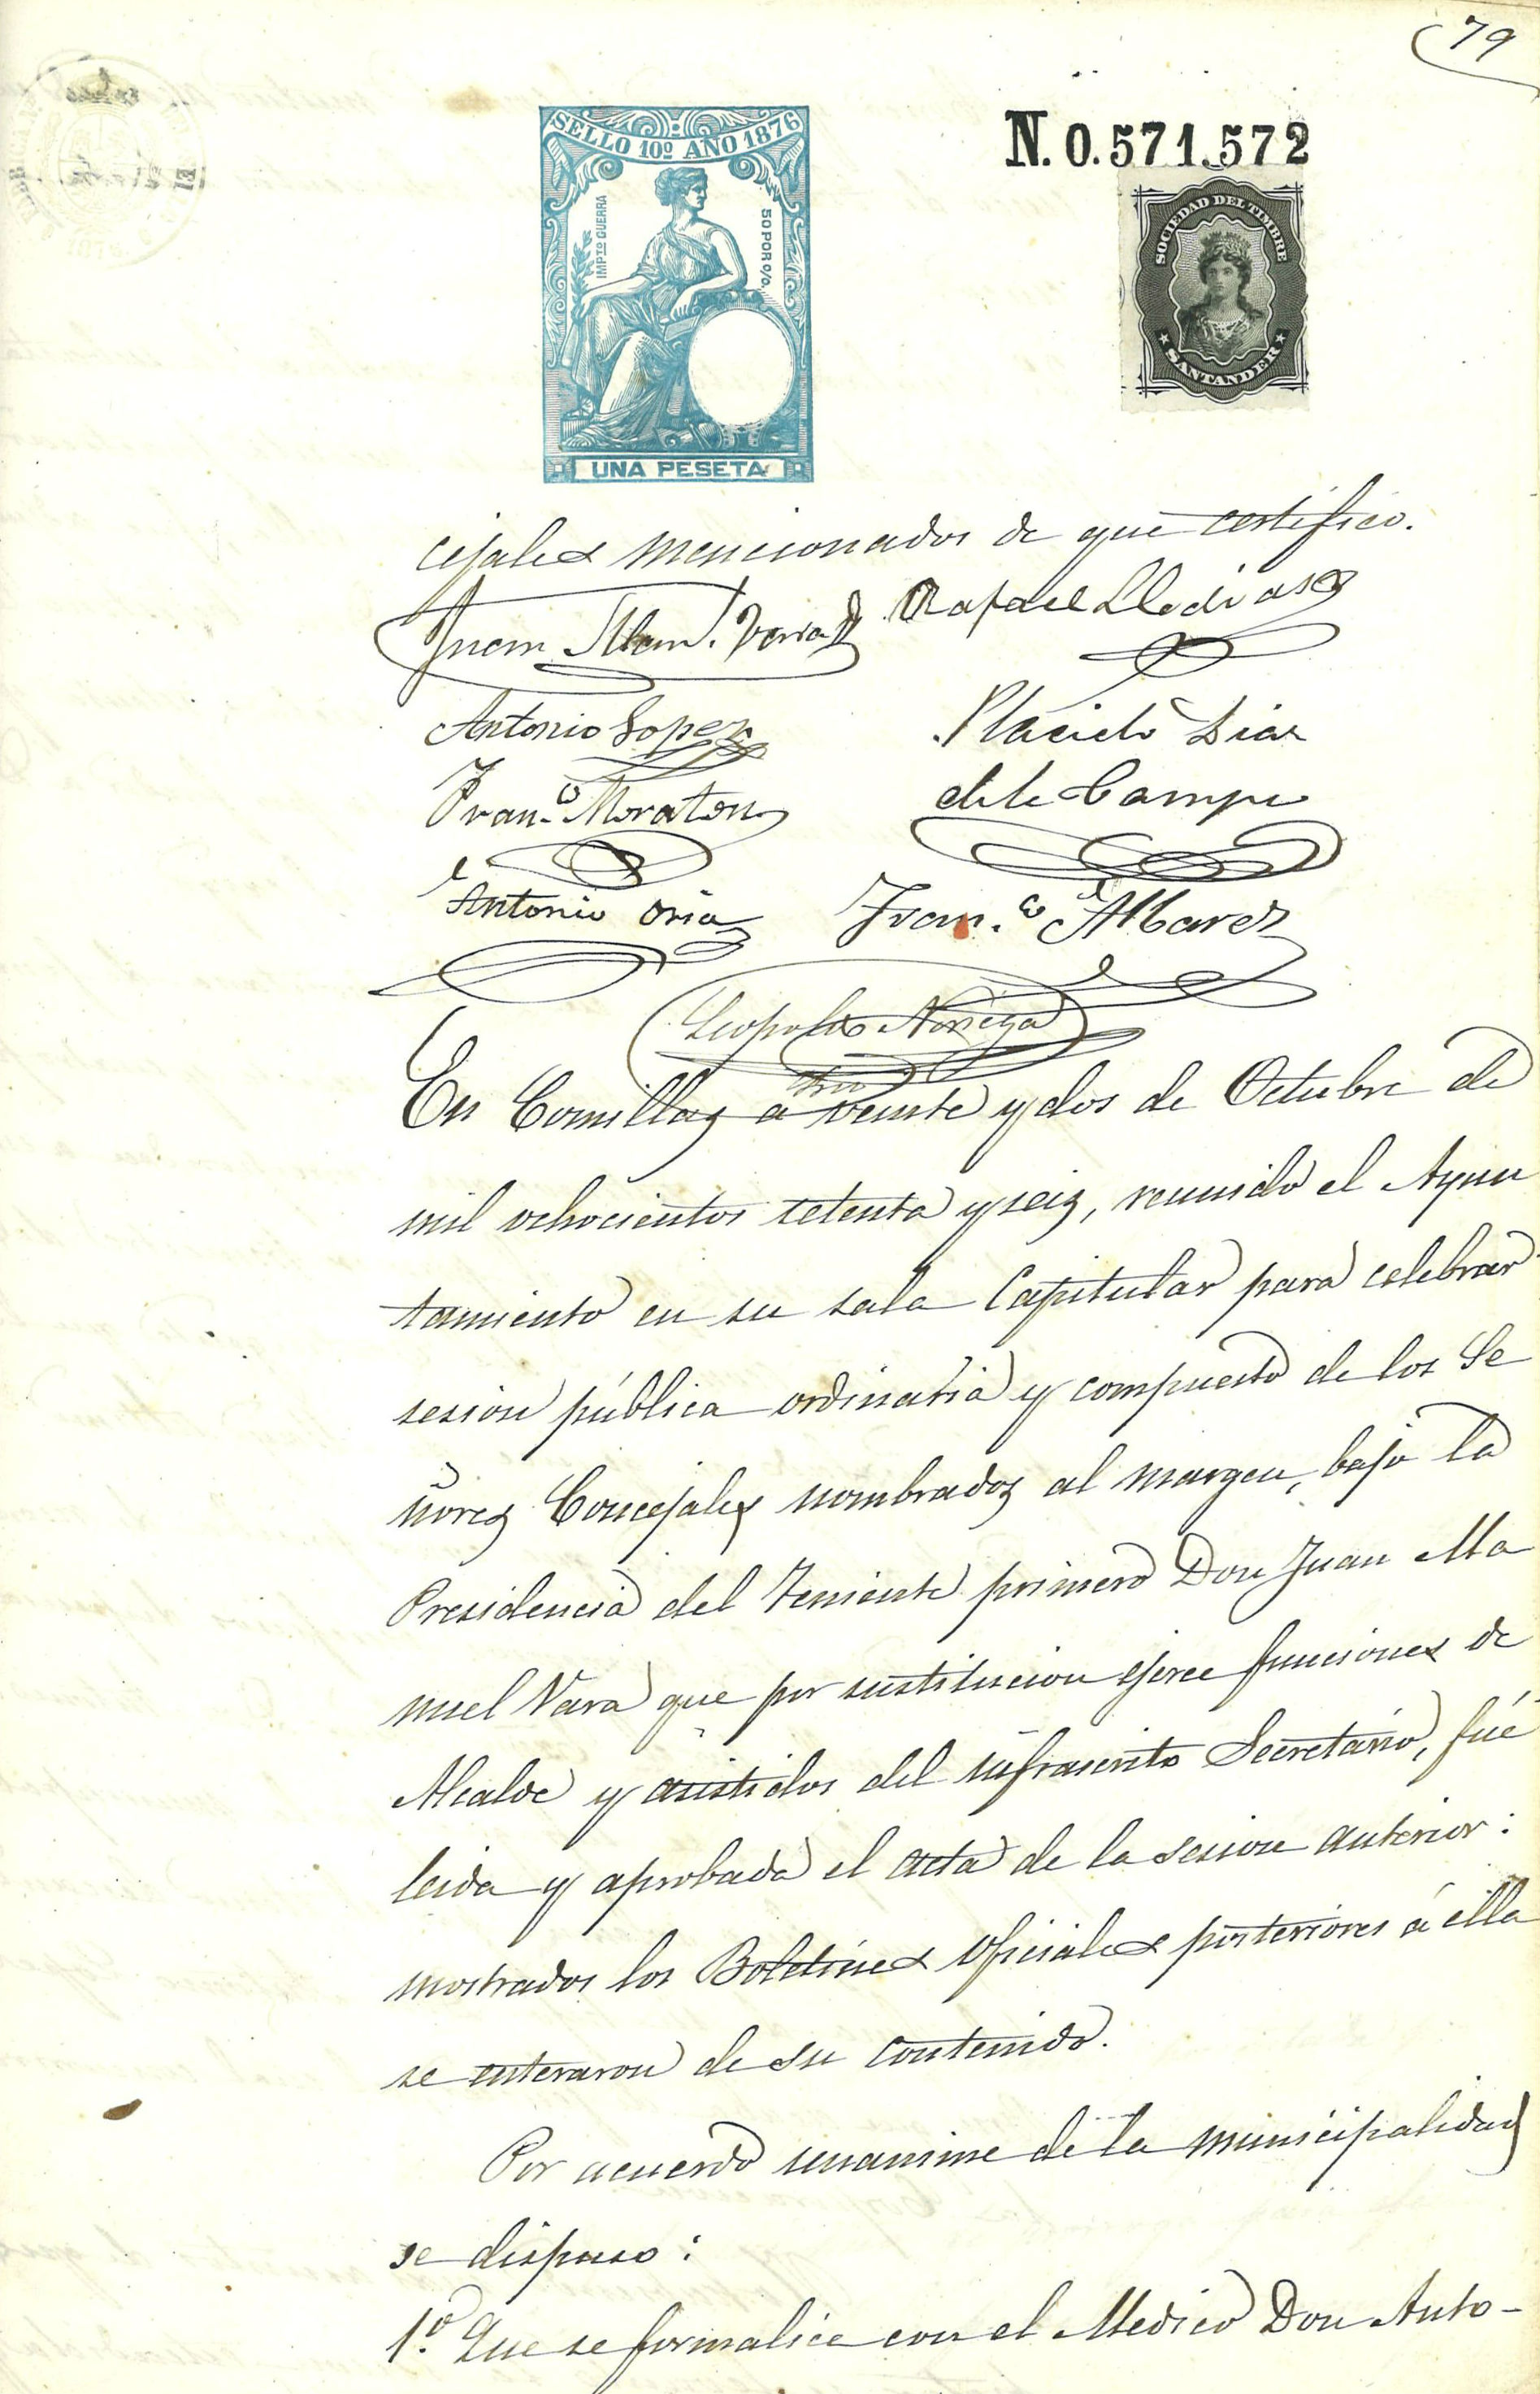 79
SELLO 10º AÑO 1876
IMPTO GUERRA
50 POR O/O.
UNA PESETA
N. 0.571.572
SOCIEDAD DEL TIMBRE
SANTANDER
cejales mencionados de que certifico.
Juan Man.l Vara Rafael Lledias
Antonio Lopez Placido Diaz
Fran.co Moraton de la Campa
Antonio Oria Fran.co Alvarez
Leopoldo Noriega
Srio
En Comillas a veinte y dos de Octubre de
mil ochocientos setenta y seis, reunido el Ayun
tamiento en su sala Capitular para celebrar
sesion pública ordinaria y compuesto de los Se
ñores Concejales nombrados al margen, bajo la
Presidencia del Teniente primero Don Juan Ma
nuel Vara que por sustitucion ejerce funciones de
Alcalde y asistidos del infrascrito Secretario, fué
leida y aprobada el acta de la sesion anterior:
mostrados los Boletines Oficiales posteriores á ella
se enteraron de su contenido.
Por acuerdo unanime de la municipalidad
se dispuso:
1º. Que se formalice con el Medico Don Anto-